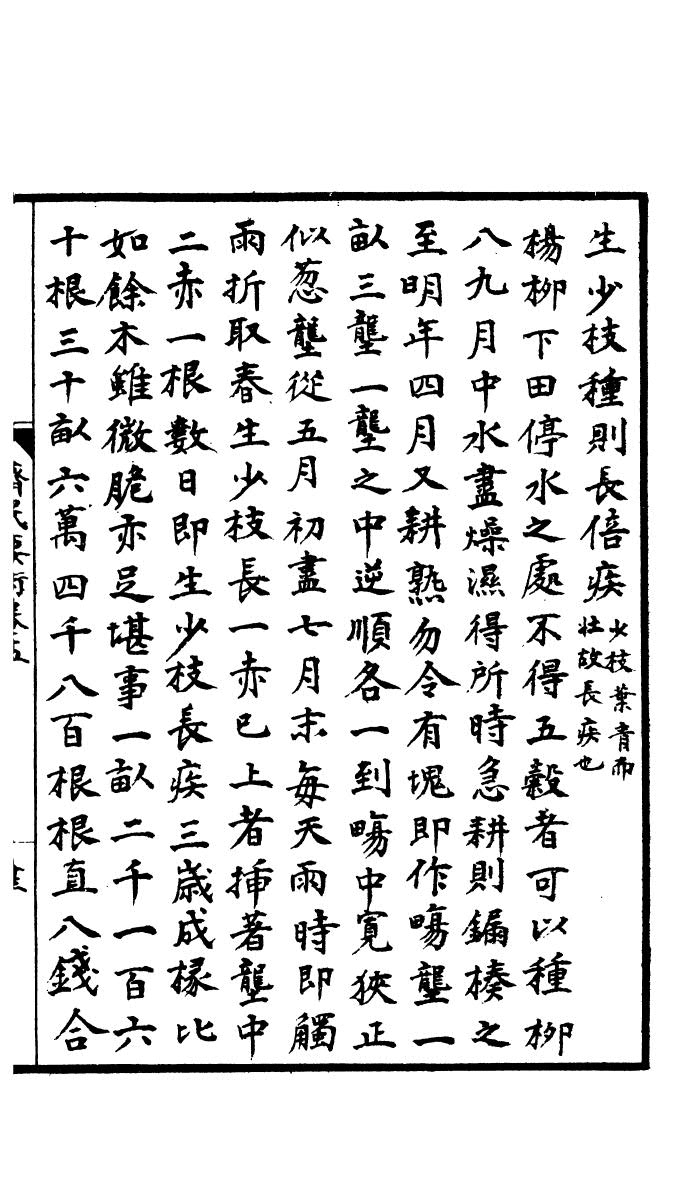 生少枝種則長倍疾少枝葉青而壯故長疾也
楊柳下田停水之處不得五穀者可以種柳
八九月中水盡燥濕得所時急耕則鏾楱之
至明年四月又耕熟勿令有塊即作塲壟一
畝三壟一壟之中逆順各一到塲中寬狹正
似葱壟從五月初盡七月末每天雨時即觸
雨折取春生少枝長一赤已上者揷著壟中
二赤一根數日即生少枝長疾三歲成椽比
如餘木雖微脆亦足堪事一畝二千一百六
十根三十畝六萬四千八百根根直八錢合